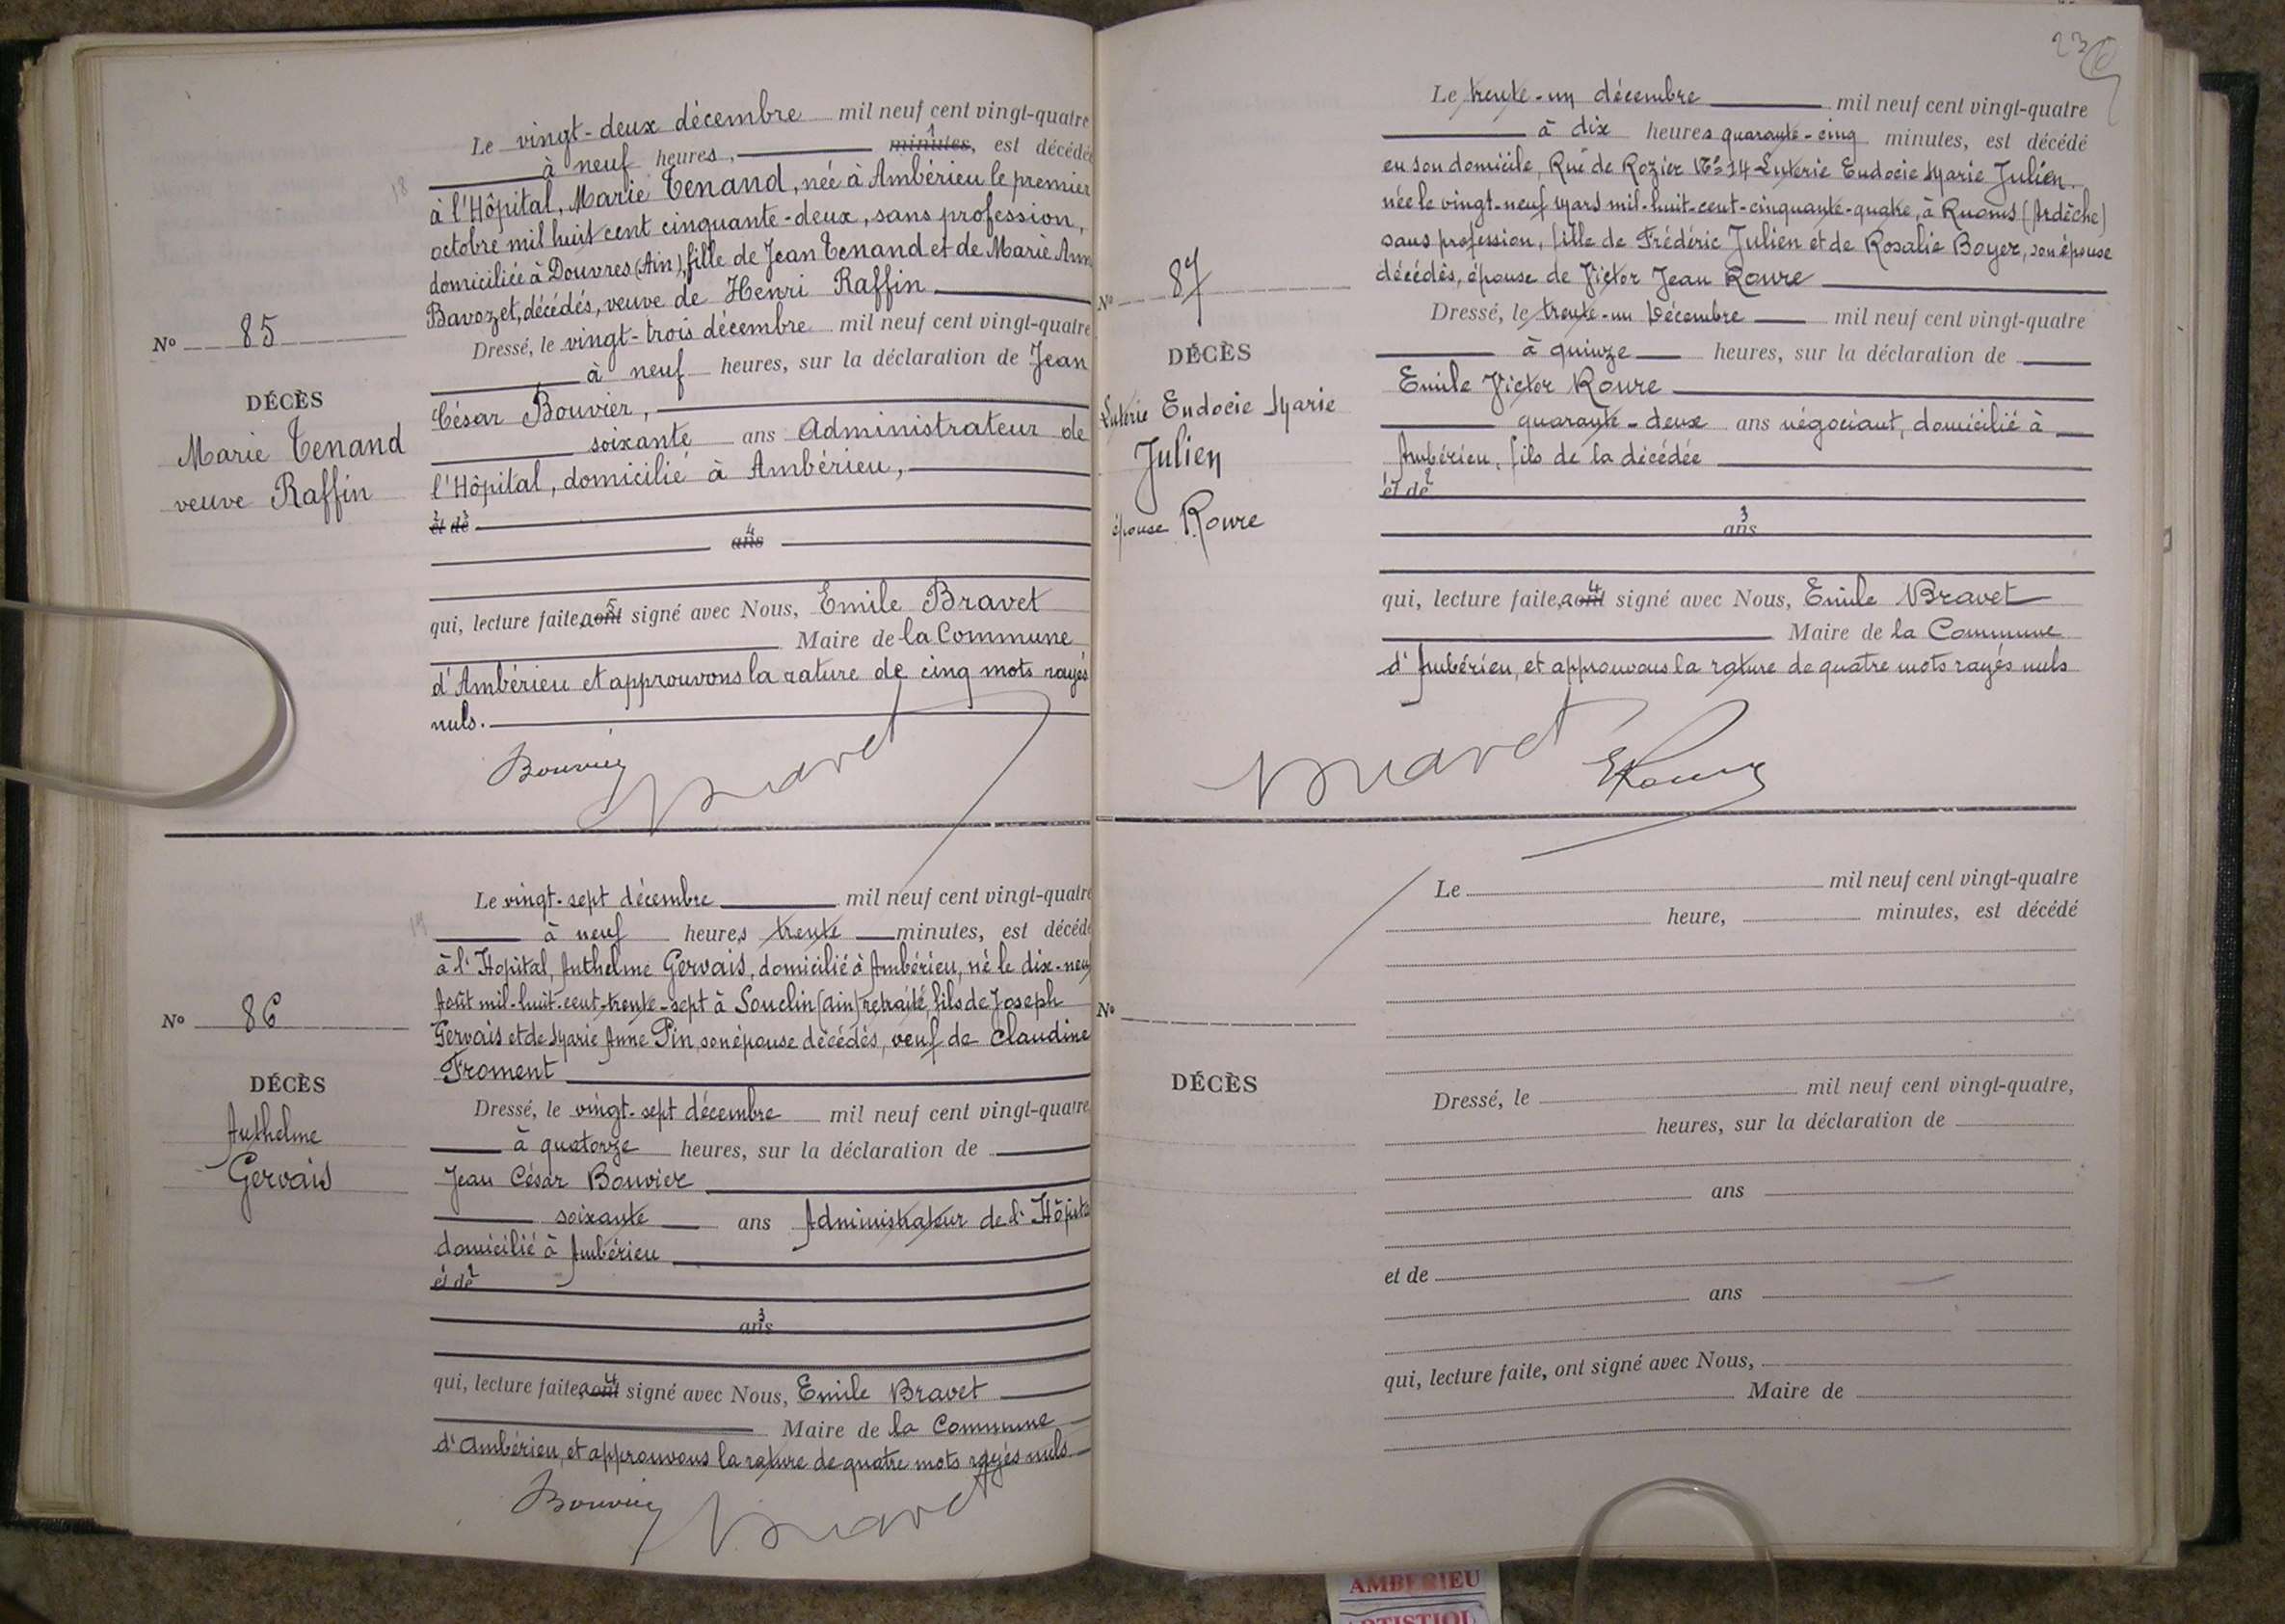 Le vingt-deux décembre mil neuf cent vingt-quatre
à neuf heures, minutes, est décédée
à l'Hôpital, Marie Tenand, née à Ambérieu le premier
octobre mil huit cent cinquante-deux, sans profession,
domiciliée à Douvres (Ain), fille de Jean Tenand et de Marie Ann
Bavozet, décédés, veuve de Henri Raffin
Dressé, le vingt-trois décembre mil neuf cent vingt-quatre
à neuf heures, sur la déclaration de Jean
César Bouvier,
soixante ans Administrateur de
l'Hôpital, domicilié à Ambérieu,
et de
ans
qui, lecture faite, a ont signé avec Nous, Emile Bravet
Maire de la Commune
d'Ambérieu et approuvons la rature de cinq mots rayés
nuls.
Bouvier Bravet
N° 85
DÉCÈS
Marie Tenand
veuve Raffin
Le vingt-sept décembre mil neuf cent vingt-quatre
à neuf heures trente minutes, est décédé
à l'Hopital, Anthelme Gervais, domicilié à Ambérieu, né le dix-neuf
Août mil-huit-cent-trente-sept à Souclin (Ain) retraité, fils de Joseph
Gervais et de Marie Anne Pin, son épouse décédés, veuf de Claudine
Froment
Dressé, le vingt-sept décembre mil neuf cent vingt-quatre
à quatorze heures, sur la déclaration de
Jean César Bouvier
soixante ans Administrateur de l'Hôpital
domicilié à Ambérieu
et de
ans
qui, lecture faite, a ont signé avec Nous, Emile Bravet
Maire de la Commune
d'Ambérieu, et approuvons la rature de quatre mots rayés nuls
Bouvier Bravet
N° 86
DÉCÈS
Anthelme
Gervais
23
Le trente-un décembre mil neuf cent vingt-quatre
à dix heures quarante-cinq minutes, est décédé
en son domicile, Rue de Rozier N° 14 Eudocie Marie Julien
née le vingt-neuf Mars mil-huit-cent-cinquante-quatre, à Ruoms (Ardèche)
sans profession, fille de Frédéric Julien et de Rosalie Boyer, son épouse
décédés, épouse de Victor Jean Roure
Dressé, le trente-un Décembre mil neuf cent vingt-quatre
à quinze heures, sur la déclaration de
Emile Victor Roure
quarante-deux ans négociant, domicilié à
Ambérieu, fils de la décédée
et de
ans
qui, lecture faite, a ont signé avec Nous, Emile Bravet
Maire de la Commune
d'Ambérieu, et approuvons la rature de quatre mots rayés nuls
Bravet ERoure
N° 87
DÉCÈS
Eudocie Marie
Julien
épouse Roure
Le mil neuf cent vingt-quatre
heure, minutes, est décédé
N°
DÉCÈS
Dressé, le mil neuf cent vingt-quatre,
heures, sur la déclaration de
ans
et de
ans
qui, lecture faite, ont signé avec Nous,
Maire de
AMBERIEU